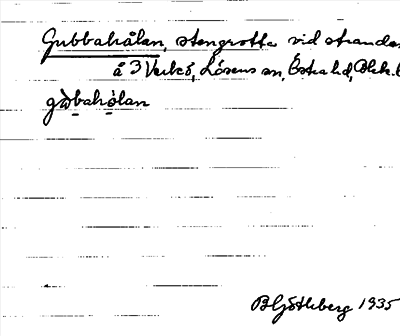 Gubbahålan, stengrotta vid stranden
å 3 Verkö, Lösens sn, Östra hd, Blek. l
gòbahòlan
B Ljöthberg 1935